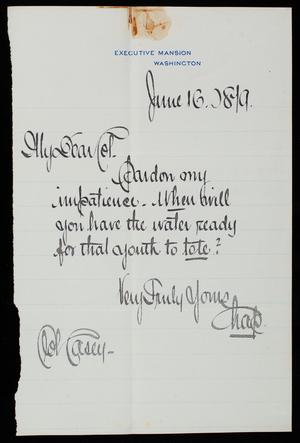 EXECUTIVE MANSION
WASHINGTON
June 16. 1879.
My Dear Col.
Pardon my
impatience. When will
you have the water ready
for that youth to tote?
Very Truly Yours
Col Casey—